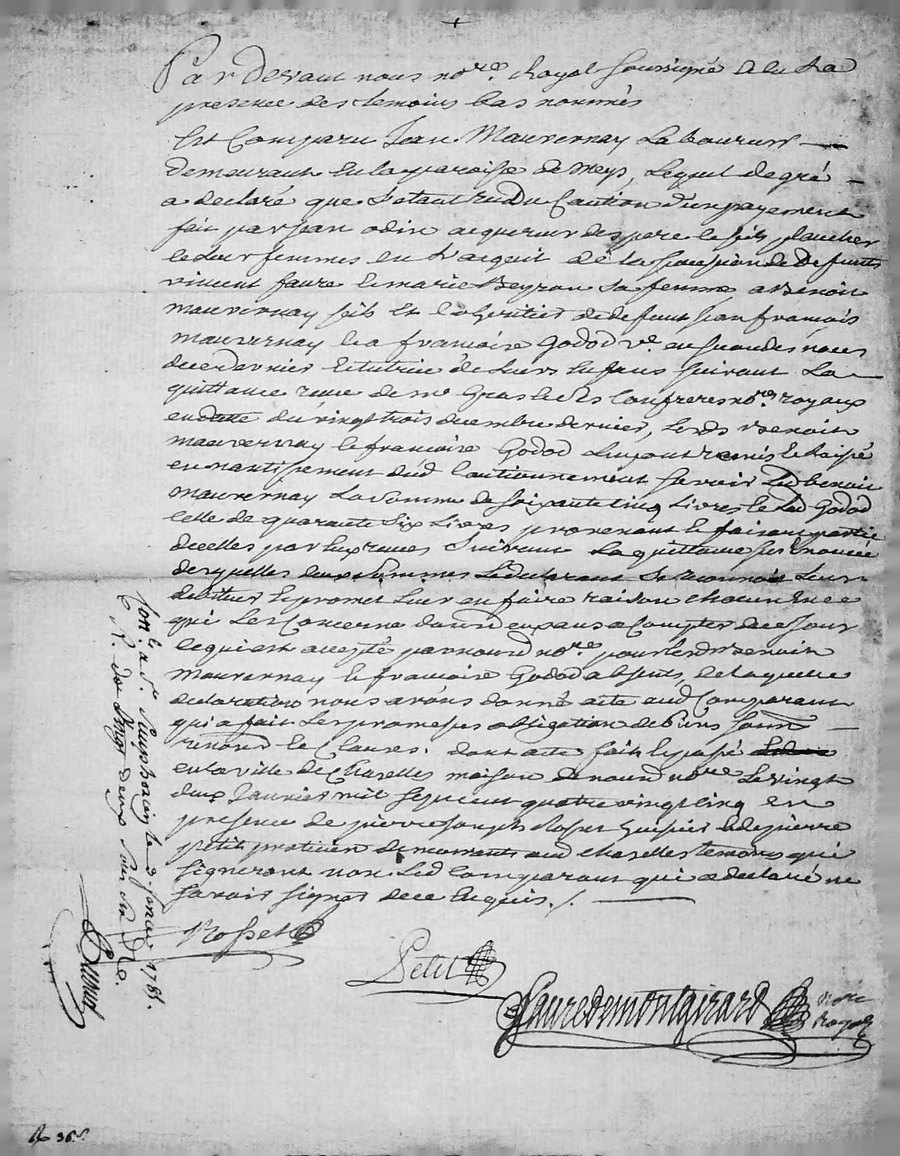 Par Devant nous nore. Royal soussigné & en la
presence des temoins bas nommés
Est Comparu Jean Mauvernay Laboureur
demeurant en la paroisse de Meys, Lequel de gré
a declaré que s'etant rendu Caution d'un payement
fait par Jean odin acquereur des pere & fils plancher
& leurs femmes en l'acquit de la succession de defunts
vincent faure & marie Beyron sa femme, a Benoit
mauvernay fils Et coheritier de defunt Jean françois
mauvernay & a françoise Godod ve. en secondes noces
de ce dernier & tutrice de Leurs Enfans suivant La
quittance reçue de me Gras & Confreres nores. royaux
en datte du vingt trois decembre dernier, Lesds Benoit
mauvernay & françoise Godod Luy ont remis & laissé
en nantissement dud Cautionnement savoir Led benoit
mauvernay La somme de soixante cinq Livres & Lad Godod
celle de quarante six Livres provenant & faisant partie
de celles par Eux reçues suivant La quittance sus Enoncée
desquelles deux sommes Le declarant se reconnoit Leur
debiteur & promet Leur en faire raison chacun En ce
qui Les Concerne dans un an a Compter de ce jour
ce qui est accepté par nousd nore. pour Lesd Benoit
Mauvernay & françoise Godod absents, de Laquelle
declaration nous avons donné acte aud Comparant
qui a fait Les promesses obligation de biens soum
renonc & Clauses. dont acte fait & passé
en la ville de Chazelles maison de nousd nore Le vingt
deux Janvier mil sept cent quatre vingt cinq en
presence de pierre Joseph Rosset huissier & de pierre
petit praticien demeurants aud chazelles temoins qui
signeront non Led Comparant qui a declaré ne
savoir signer de ce Enquis ./.
Rosset
Petit
fauredemontgirard nore
Royal
Con.lé a St
1785.
R. dix vingt deux sous six drs.
R 36.s.